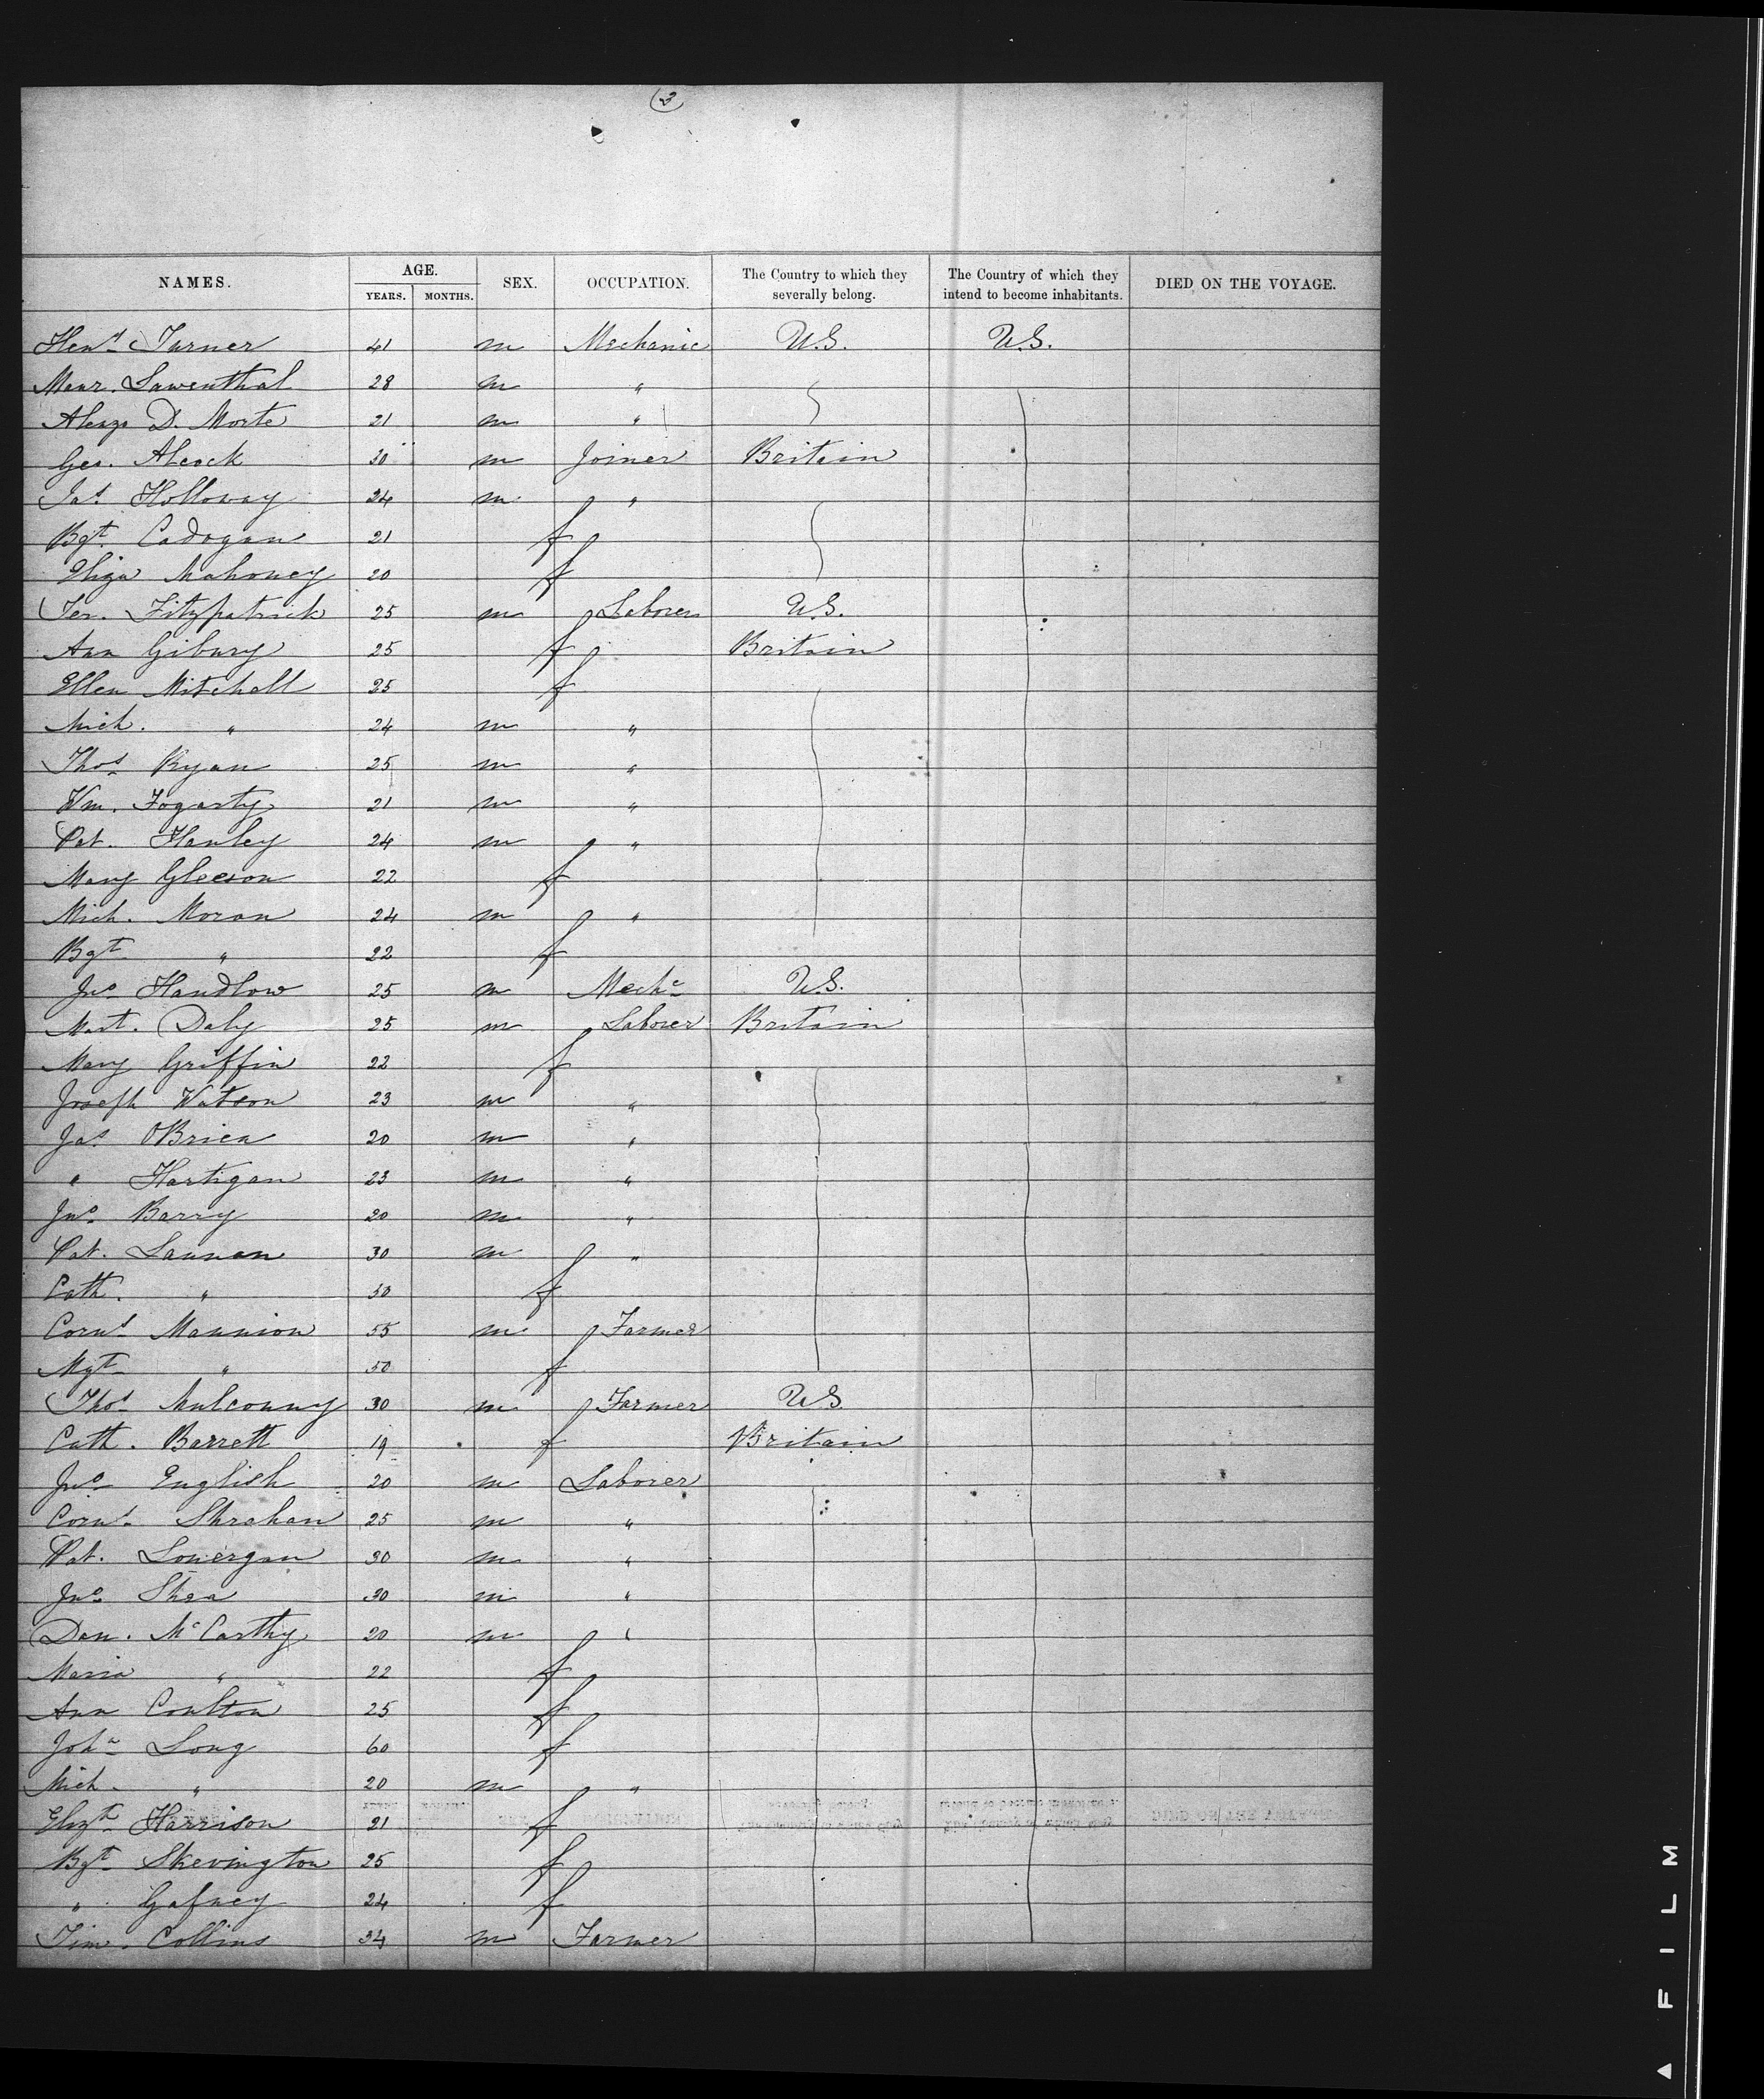 3
NAMES. AGE. SEX. OCCUPATION. The Country to which they severally belong. The Country of which they intend to become inhabitants. DIED ON THE VOYAGE.
YEARS. MONTHS.
Heny Turner 41 m Mechanic U.S. U.S.
Maur. Lawenthal 28 m "
Alenzo D. Morte 21 m "
Geo. Alcock 30 m Joiner Britain
Jas Holloway 24 m "
Bgt Cadogan 21 f
Eliza Mahoney 20 f
Jer. Fitzpatrick 25 m Laborer U.S.
Ann Gibury 25 f Britain
Ellen Mitchell 25 f
Mich. " 24 m "
Thos Ryan 25 m "
Wm. Fogarty 21 m "
Pat. Hanley 24 m "
Mary Gleeson 22 f
Mich. Moran 24 m "
Bgt " 22 f
Jno Handlow 25 m Mechc U.S.
Mart. Daly 25 m Laborer Britain
Mary Griffin 22 f
Joseph Watson 23 m "
Jas OBrien 20 m "
" Hartigan 23 m "
Jno Barry 20 m "
Pat. Lannan 30 m "
Cath. " 30 f
Corns Mannion 55 m Farmer
Mgt " 50 f
Thos Mulconny 30 m Farmer U.S.
Cath. Barrett 19 f Britain
Jno English 20 m Laborer
Corns Shrahan 25 m "
Pat. Lonergan 30 m "
Jno Shea 30 m "
Dan. McCarthy 20 m "
Maria " 22 f
Ann Coulton 25 f
Joha Long 60 f
Mich. " 20 m "
Elizth Harrison 21 f
Bgt Skevington 25 f
" Gafney 24 f
Tim. Collins 34 m Farmer
FILM